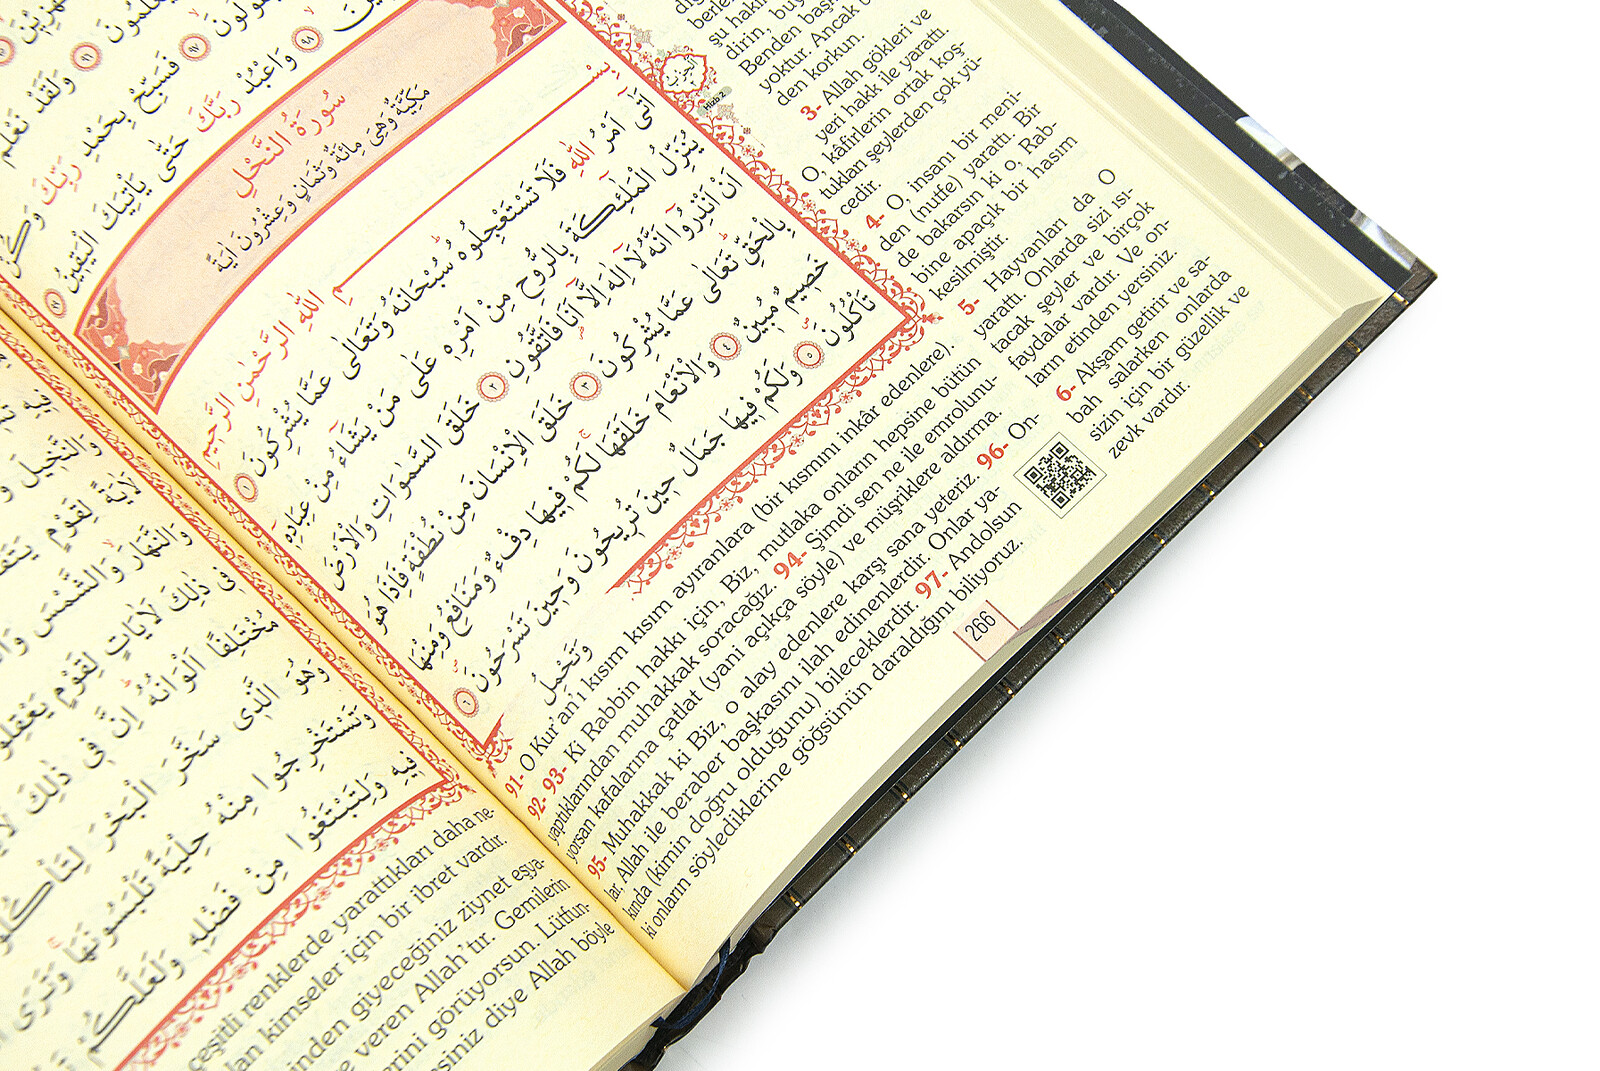 نَ ﴿٩٨﴾ وَاعْبُدْ رَبَّكَ حَتّٰى يَأْتِيَكَ الْيَقٖينُ ﴿٩٩﴾
سُورَةُ النَّحْلِ
مَكِّيَّةٌ وَهِىَ مِائَةٌ وَثَمَانٍ وَعِشْرُونَ اٰيَةً
بِسْمِ اللّٰهِ الرَّحْمٰنِ الرَّحٖيمِ
اَتٰٓى اَمْرُ اللّٰهِ فَلَا تَسْتَعْجِلُوهُ سُبْحَانَهُ وَتَعَالٰى عَمَّا يُشْرِكُونَ ﴿١﴾
يُنَزِّلُ الْمَلٰٓئِكَةَ بِالرُّوحِ مِنْ اَمْرِهٖ عَلٰى مَنْ يَشَٓاءُ مِنْ عِبَادِهٖٓ
اَنْ اَنْذِرُٓوا اَنَّهُ لَٓا اِلٰهَ اِلَّٓا اَنَا فَاتَّقُونِ ﴿٢﴾ خَلَقَ السَّمٰوَاتِ وَالْاَرْضَ
بِالْحَقِّ تَعَالٰى عَمَّا يُشْرِكُونَ ﴿٣﴾ خَلَقَ الْاِنْسَانَ مِنْ نُطْفَةٍ فَاِذَا هُوَ
خَصٖيمٌ مُبٖينٌ ﴿٤﴾ وَالْاَنْعَامَ خَلَقَهَا لَكُمْ فٖيهَا دِفْءٌ وَمَنَافِعُ وَمِنْهَا
تَأْكُلُونَ ﴿٥﴾ وَلَكُمْ فٖيهَا جَمَالٌ حٖينَ تُرٖيحُونَ وَحٖينَ تَسْرَحُونَ ﴿٦﴾
وَتَحْمِلُ
الحزب
Hizb.2
şu hakik
dirin, buy
Benden başk
yoktur. Ancak b
den korkun.
3- Allah gökleri ve
yeri hakk ile yarattı.
O, kâfirlerin ortak koş-
tukları şeylerden çok yü-
cedir.
4- O, insanı bir meni-
den (nutfe) yarattı. Bir
de bakarsın ki O, Rab-
bine apaçık bir hasım
kesilmiştir.
5- Hayvanları da O
yarattı. Onlarda sizi ısı-
tacak şeyler ve birçok
faydalar vardır. Ve on-
ların etinden yersiniz.
6- Akşam getirir ve sa-
bah salarken onlarda
sizin için bir güzellik ve
zevk vardır.
91- O Kur'an'ı kısım kısım ayıranlara (bir kısmını inkâr edenlere).
92- 93- Ki Rabbin hakkı için, Biz, mutlaka onların hepsine bütün
yaptıklarından muhakkak soracağız. 94- Şimdi sen ne ile emrolunu-
yorsan kafalarına çatlat (yani açıkça söyle) ve müşriklere aldırma.
95- Muhakkak ki Biz, o alay edenlere karşı sana yeteriz. 96- On-
lar, Allah ile beraber başkasını ilah edinenlerdir. Onlar ya-
kında (kimin doğru olduğunu) bileceklerdir. 97- Andolsun
ki onların söylediklerine göğsünün daraldığını biliyoruz.
266
لَاٰيَةً لِقَوْمٍ
وَالنَّهَارَ وَالشَّمْسَ
فٖى ذٰلِكَ لَاٰيَاتٍ لِقَوْمٍ يَعْقِلُو
مُخْتَلِفًا اَلْوَانُهُ اِنَّ فٖى ذٰلِكَ
وَهُوَ الَّذٖى سَخَّرَ الْبَحْرَ لِتَأْكُلُو
وَتَسْتَخْرِجُوا مِنْهُ حِلْيَةً تَلْبَسُونَهَا وَتَرَى
فٖيهِ وَلِتَبْتَغُوا مِنْ فَضْلِهٖ وَلَعَلَّكُمْ
çeşitli renklerde yarattıkları daha ne-
lan kimseler için bir ibret vardır.
inden giyeceğiniz ziynet eşya-
e veren Allah'tır. Gemilerin
erini görüyorsun. Lütfun-
siniz diye Allah böyle